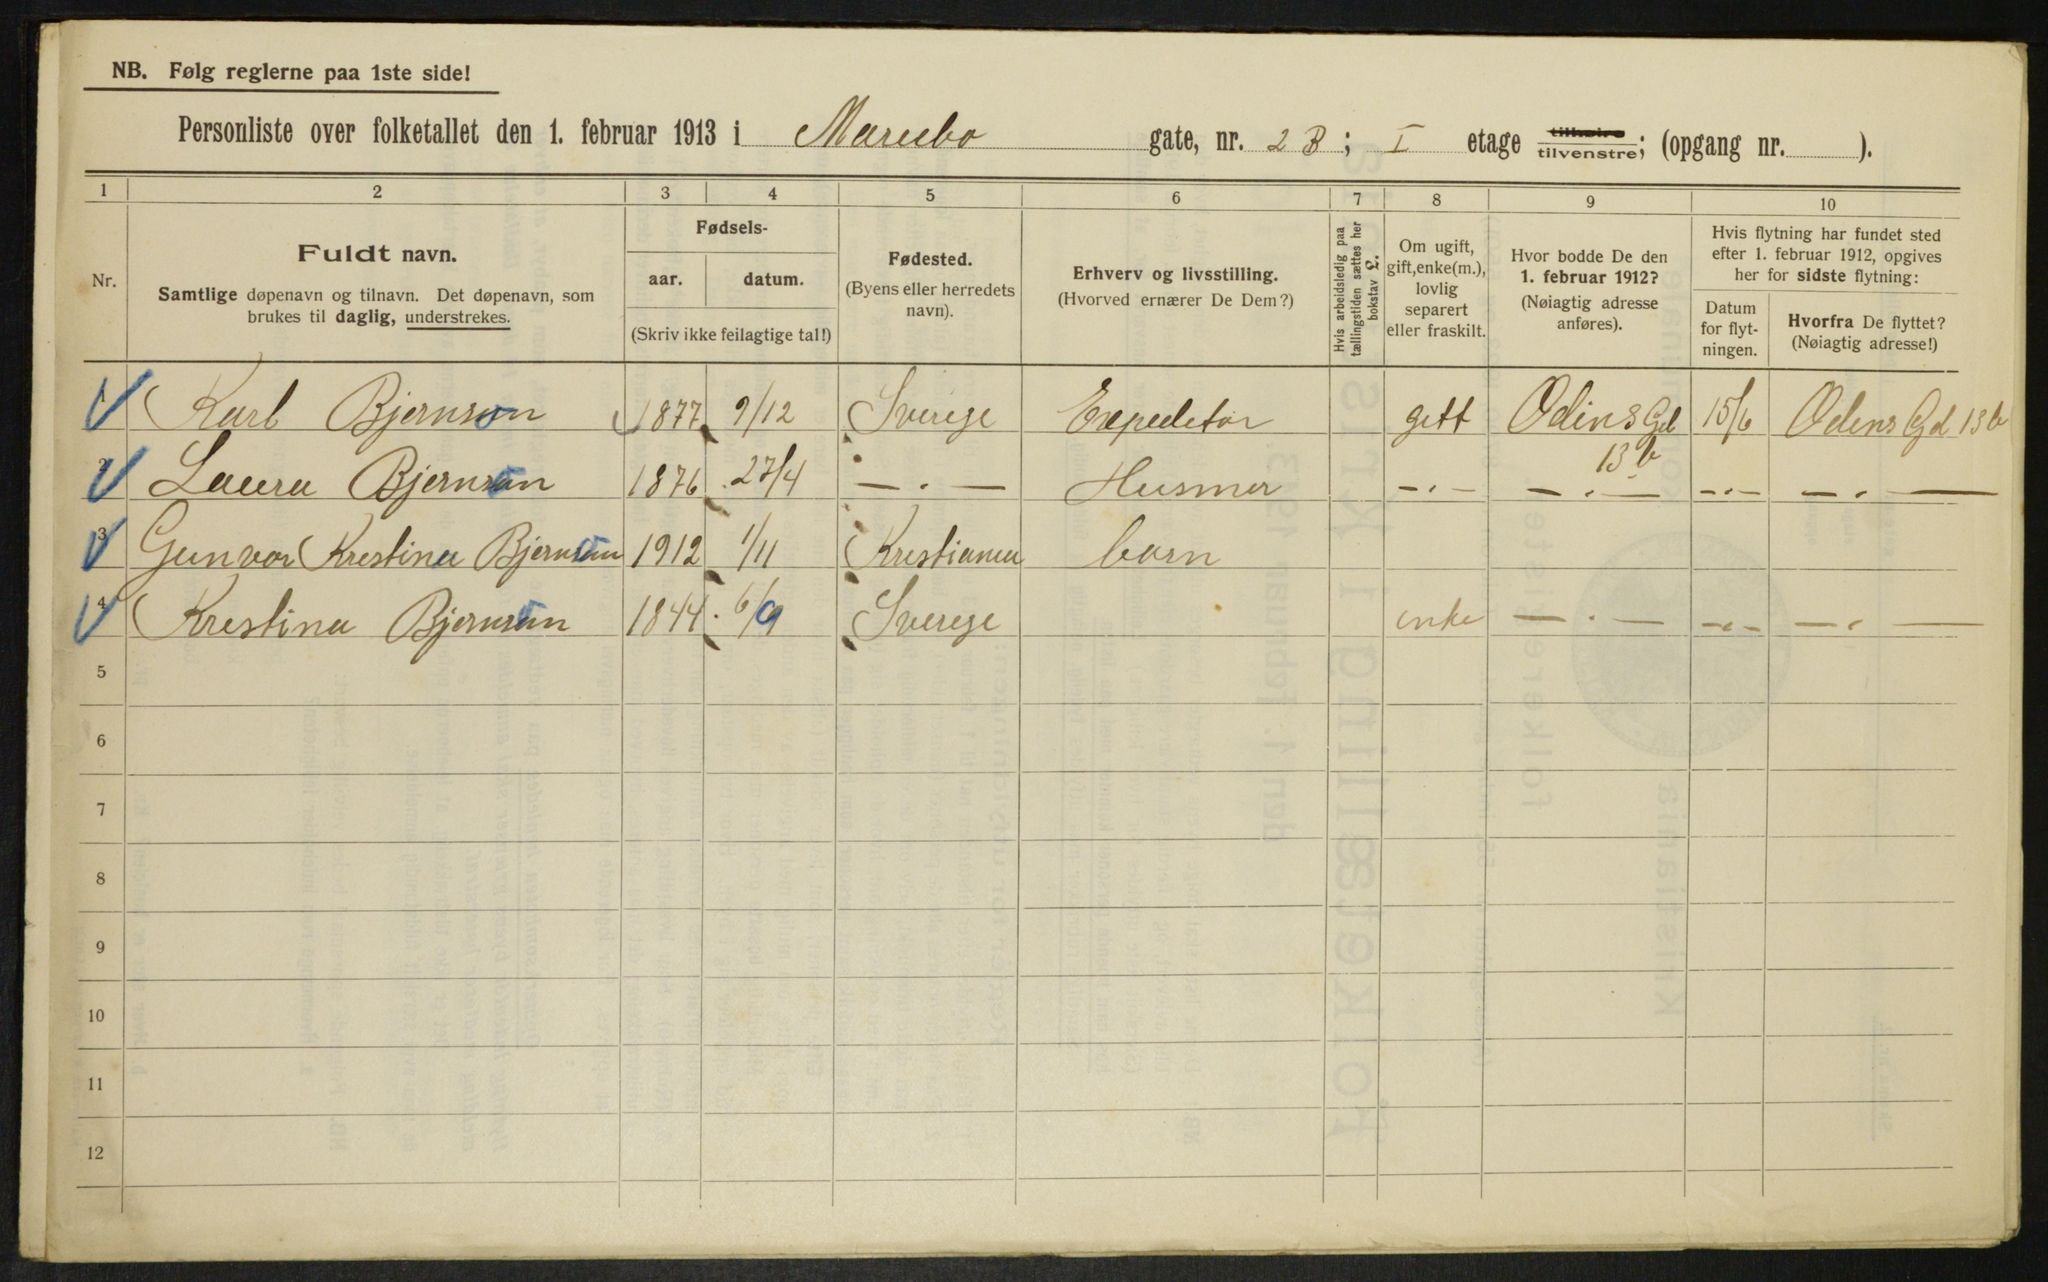 NB. Følg reglerne paa 1ste side!
Personliste over folketallet den 1. februar 1913 i Mariebo gate, nr. 2 B; I etage tilhøire tilvenstre; (opgang nr. ).
1 2 3 4 5 6 7 8 9 10
Nr.
Fuldt navn.
Samtlige døpenavn og tilnavn. Det døpenavn, som
brukes til daglig, understrekes.
Fødsels-
aar. datum.
(Skriv ikke feilagtige tal!)
Fødested.
(Byens eller herredets
navn).
Erhverv og livsstilling.
(Hvorved ernærer De Dem?)
Hvis arbeidsledig paa
tællingstiden sættes her
bokstav L.
Om ugift,
gift, enke(m.),
lovlig
separert
eller fraskilt.
Hvor bodde De den
1. februar 1912?
(Nøiagtig adresse
anføres).
Hvis flytning har fundet sted
efter 1. februar 1912, opgives
her for sidste flytning:
Datum
for flyt-
ningen.
Hvorfra De flyttet?
(Nøiagtig adresse!)
1 Karl Bjernson 1877 9/12 Sverige Expeditør gift Odins Gd 13 b 15/6 Odens Gd 13 b
2 Laura Bjernson 1876 27/4 — . — Husmor — . — — . — — . — — . —
3 Gunvor Krestina Bjernson 1912 1/11 Kristiania barn
4 Krestina Bjernson 1844 6/9 Sverige enke — . — — . — — . —
5
6
7
8
9
10
11
12